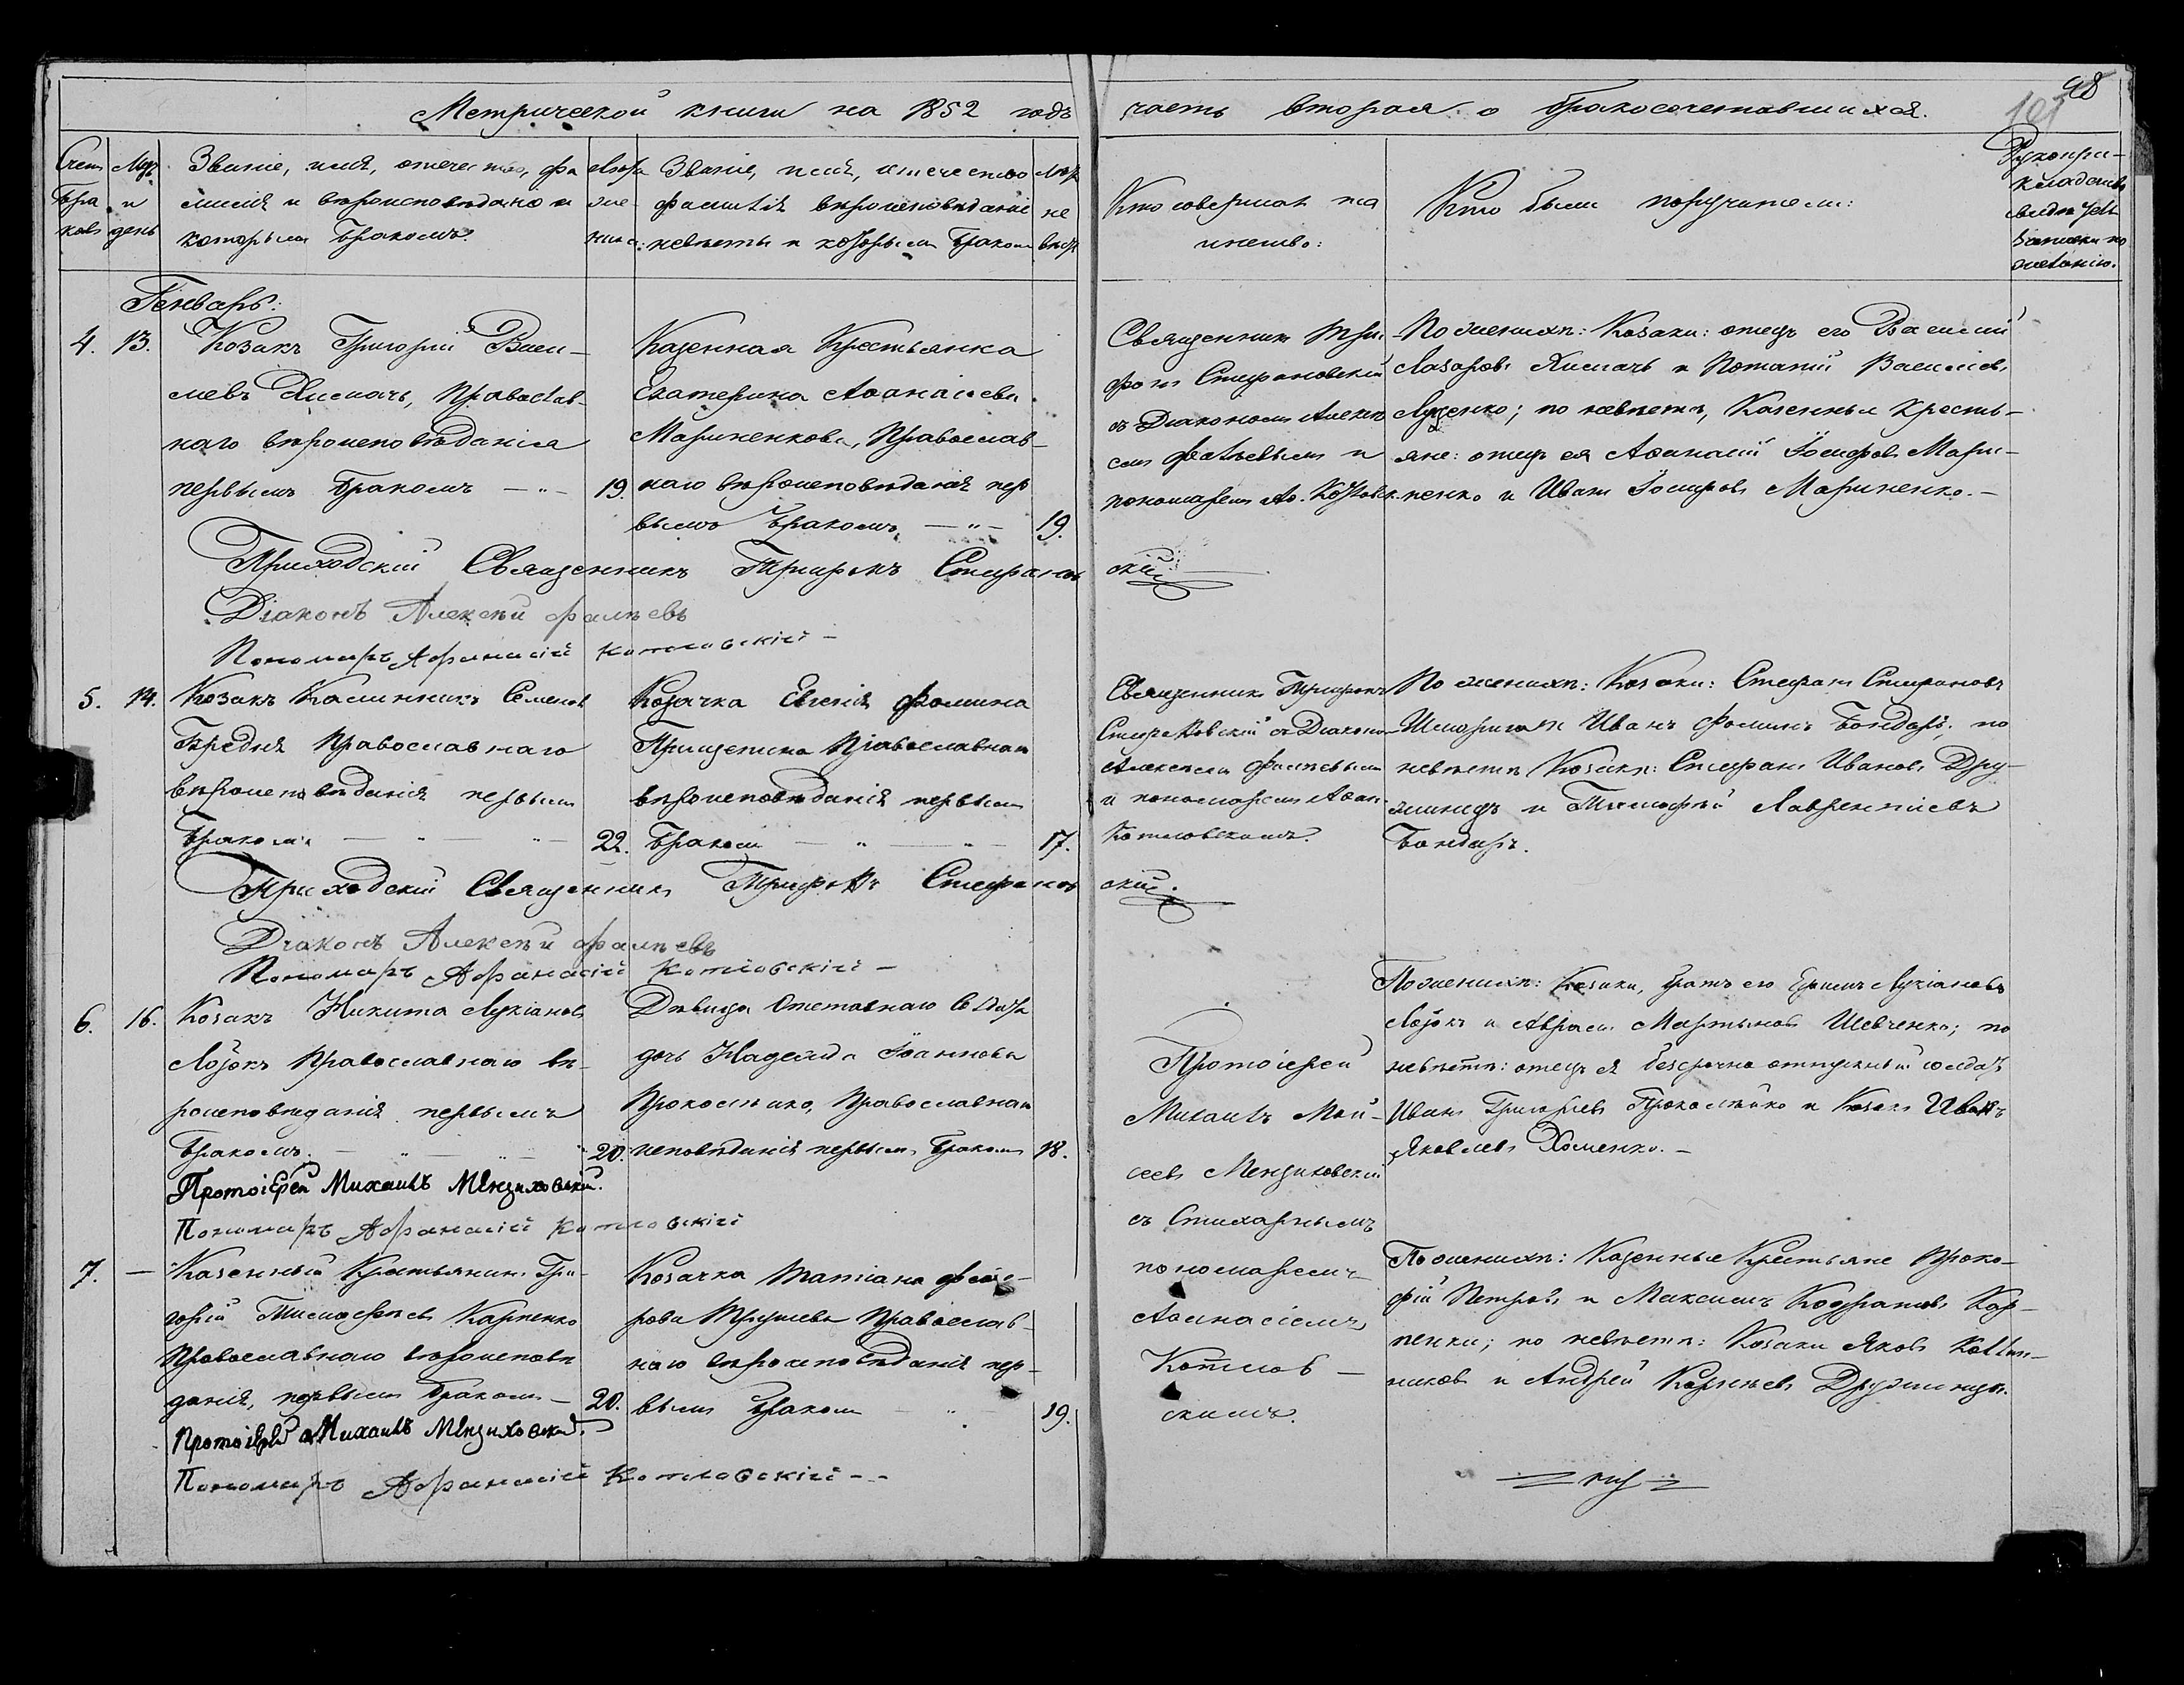 98
Метрической книги на 1852 годъ часть вторая о бракосочетавшихся.
Счет браковъ
Мцъ и день
Званіе, имя, отечество, фамилія и вѣроисповѣданіе и которымъ бракомъ.
Лѣта жениха.
Званіе, имя, отечество фамилія вѣроисповѣданіе невѣсты и которым браком
Лѣта невѣст
Кто совершал таинство:
Кто были поручители:
Генварь:
4. 13.
Козакъ Григорій Васи-
левъ Хисмачь, Православ-
наго вѣроисповѣданія
первымъ бракомъ — 19.
Казенная Крестьянка
Екатерина Аѳанасіева
Мариненкова, Православ-
наго вѣроисповѣданія пер
вымъ бракомъ — 19.
Священник Три-
фон Стефановскій
съ Діакономъ Алекѣ
ем Фалѣевымъ и
пономарем Аѳ. Котлов.
По женихѣ: Козаки: отецъ его Василій
Лазаровъ и Потапій Васильевъ
Луценко; по невѣстѣ, Казенные Кресть-
яне: отецъ ея Аѳанасій Іосифовъ Мари-
ненко и Иванъ Іосифовъ Мариненко. —
Приходскій Священникъ Трифонъ Стефанов
скій
Діаконъ Алексѣй Фалѣевъ
Пономарь Афанасій Котловскій —
5. 14.
Козакъ Калинникъ Семеновъ
Бредня Православнаго
вѣроисповѣданія первымъ
бракомъ — 22.
Козачка Евгенія Фомина
Прищепина Православнаго
вѣроисповѣданія первымъ
браком — 17.
Священник Трифонъ
Стефановскій съ Діакономъ
Алексѣемъ Фалѣевымъ
и пономаремъ Аѳан.
Котловскимъ.
По женихѣ: Козаки: Стефанъ Стефановъ
и Иванъ Фоминъ Бондарь; по
невѣстѣ Козаки: Стефанъ Ивановъ Дру-
жинецъ и Тимофѣй Лаврентіевъ
Бондарь.
Приходскій Священникъ Трифонъ Стефанов
скій.
Діаконъ Алексѣй Фалѣевъ
Пономарь Афанасій Котловскій —
6. 16.
Козакъ Никита Лукіановъ
Лозокъ Православнаго вѣ-
роисповѣданія первымъ
бракомъ. — 20.
Дѣвица Отставнаго Солдата
дочь Надежда Іоаннова
Прокопѣнко, Православнаго
исповѣданія первымъ бракомъ 18.
Протоіерей
Михаилъ Мои-
сеевъ Менциховскій
съ Стихарнымъ
пономаремъ
Аѳанасіемъ
Котлов —
скимъ.
По женихѣ: Козаки, братъ его Ефимъ Лукіановъ
Лозокъ и Аврамъ Мартыновъ Шевченко; по
невѣстѣ: отецъ ея безсрочно отпускный солдатъ
Иванъ Григорьевъ и Козакъ Иванъ
Яковлевъ Хоменко. —
Протоіерей Михаилъ Менциховскій.
Пономарь Афанасій Котловскій
7. —
Казенный Крестьянинъ Гри-
горій Тимофѣевъ Карпенко
Православнаго вѣроисповѣ
данія, первымъ бракомъ — 20.
Козачка Татіана Федо-
рова Православ-
наго вѣроисповѣданія пер-
вымъ браком — 19.
По женихѣ: Казенные Крестьяне Проко-
фій Петровъ и Максимъ Кодратовъ Кар-
пенки; по невѣстѣ: Козаки Яковъ Калин-
никовъ и Андрей Корнѣевъ Дружинцы.
Протоіерей Михаилъ Менциховскій.
Пономарь Афанасій Котловскій --